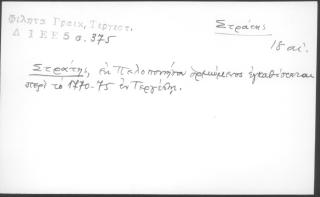 Φίλητα Γραικ, Τεργεστ.
Δ Ι Ε Ε 5 σ. 375
Στράτης
18 αἰ.
Στράτης, ἐκ Πελοποννήσου ὁρμώμενος ἐγκαθίσταται
περὶ τὸ 1770-75 ἐν Τεργέστῃ.